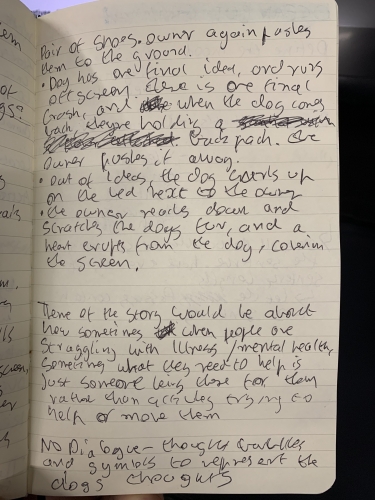 Pair of shoes. Owner again pushes
them to the ground.
• Dog has one final idea, and runs
offscreen. There is one final
crash, and when the dog comes
back, they're holding a
back pack. The
owner pushes it away.
• out of ideas, the dog curls up
on the bed next to the owner
• the owner reaches down and
scratches the dogs fur, and a
heart erupts from the dog, coverin
the screen.
Theme of the story would be about
how sometimes when people are
struggling with illness/mental health,
Sometimes what they need to help is
Just someone being there for them
rather than actively trying to
help or move them
No Dialogue - thought bubbles
and symbols to represent the
dogs thoughts